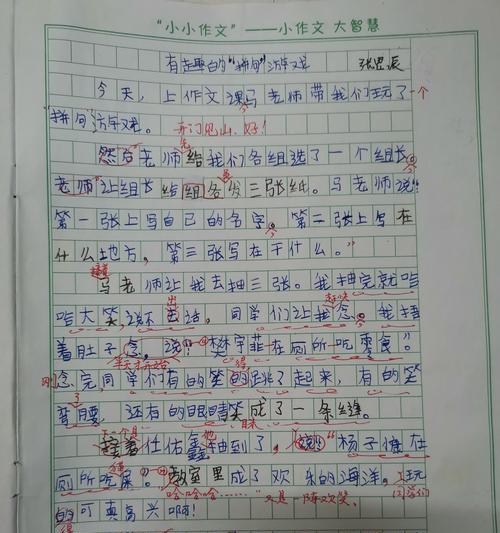 “小小作文”——小作文 大智慧
有趣的“拼句”游戏 张恩宸
今天，上作文课马老师带我们玩了一个
拼句游戏。开门见山，好！
然后老师给我们各组选了一个组长。
老师让组长给组各发三张纸。马老师说“
第一张上写自己的名字。第二张上写在
什么地方，第三张写在干什么。”
接着
马老师让我去抽三张。我抽完就哈
出 赶快
哈大笑，说不出话，同学们让我念。我捂
着肚子念，说“樊宇菲在厕所吃零食”。
半天才开始 得
刚念完，同学们有的笑的跳了起来，有的笑
弯腰，还有的眼睛笑成了一条缝。
了 眯
下一个是 他
接着任佑鑫抽到了，说“杨子健在
厕所吃屎”。教室里成了欢乐的海洋。玩
哈哈哈……” 又是一阵欢笑。 我们
的可真高兴啊！
得